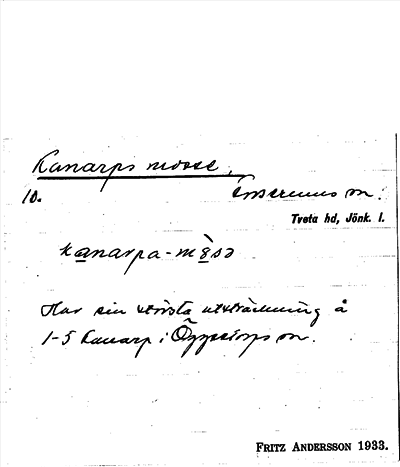 Kanarps mosse,
10.
Tveta hd, Jönk. l.
kanarpa-m
Har sin största utsträckning å
1-5 Kanarp i Öggestorps sn.
FRITZ ANDERSSON 1933.